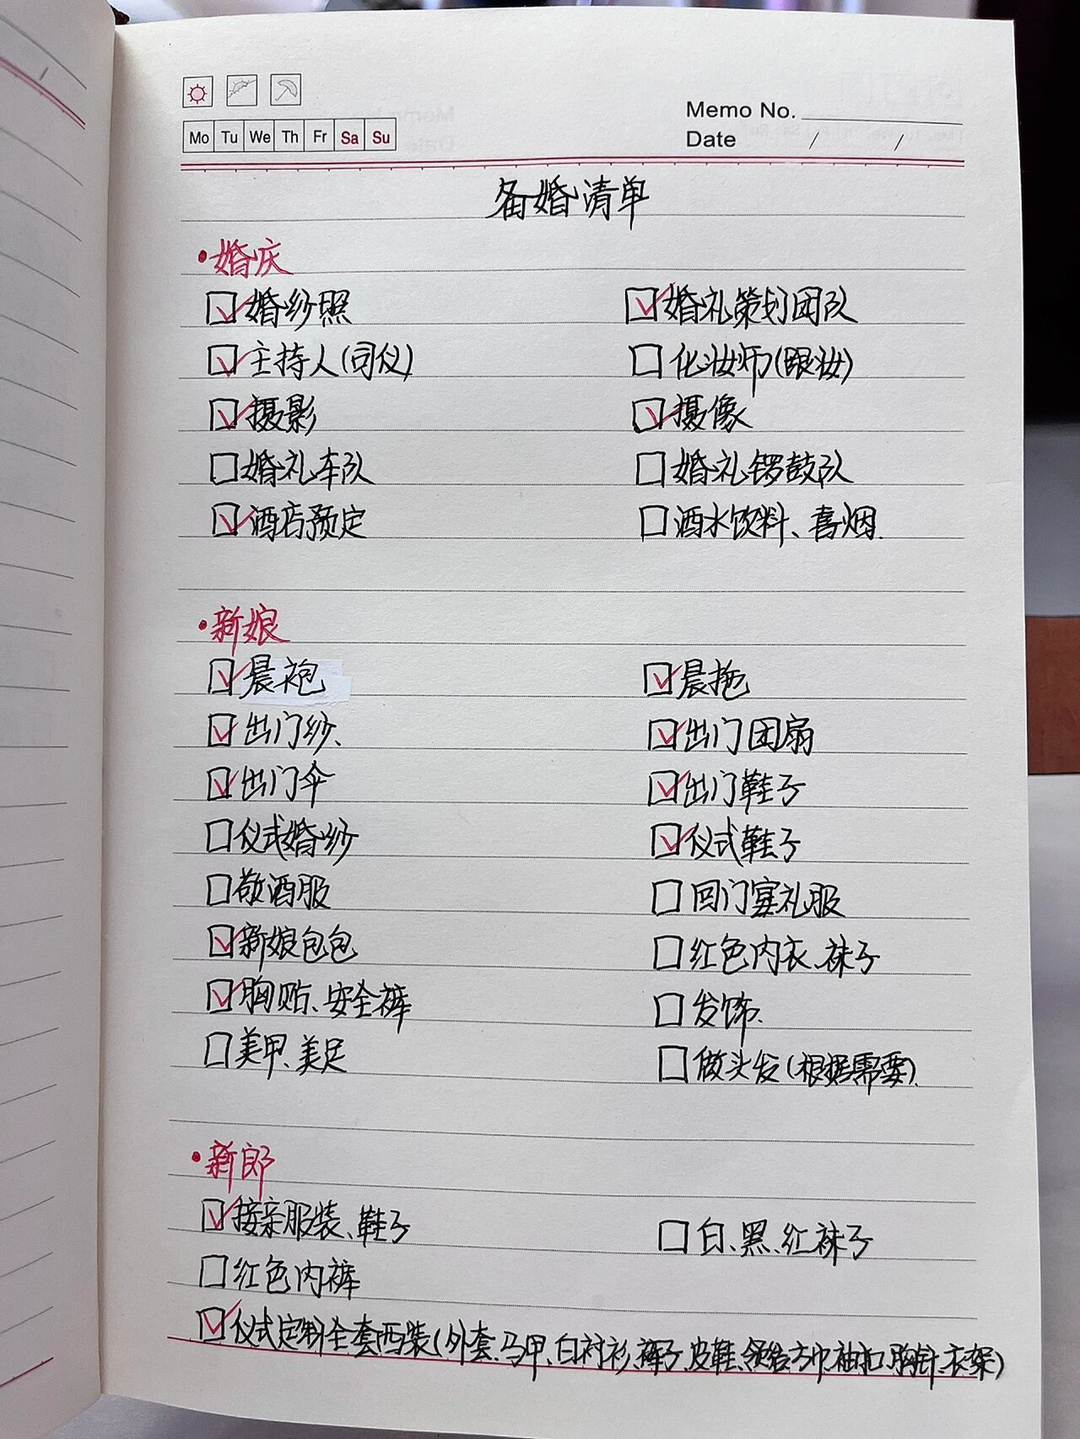 Mo Tu We Th Fr Sa Su
Memo No.
Date / /
备婚清单
•婚庆
☑婚纱照 ☑婚礼策划团队
☑主持人(司仪) ☐化妆师(跟妆)
☑摄影 ☑摄像
☐婚礼车队 ☐婚礼锣鼓队
☑酒店预定 ☐酒水饮料、喜烟.
•新娘
☑晨袍 ☑晨拖
☑出门纱、 ☑出门团扇
☑出门伞 ☑出门鞋子
☐仪式婚纱 ☑仪式鞋子
☐敬酒服 ☐回门宴礼服
☑新娘包包 ☐红色内衣、袜子
☑胸贴、安全裤 ☐发饰.
☐美甲、美足 ☐做头发(根据需要).
•新郎
☑接亲服装、鞋子 ☐白、黑、红袜子
☐红色内裤
☑仪式定制全套西装(外套、马甲、白衬衫、裤子、皮鞋、领结、方巾、袖扣、胸针、衣架)